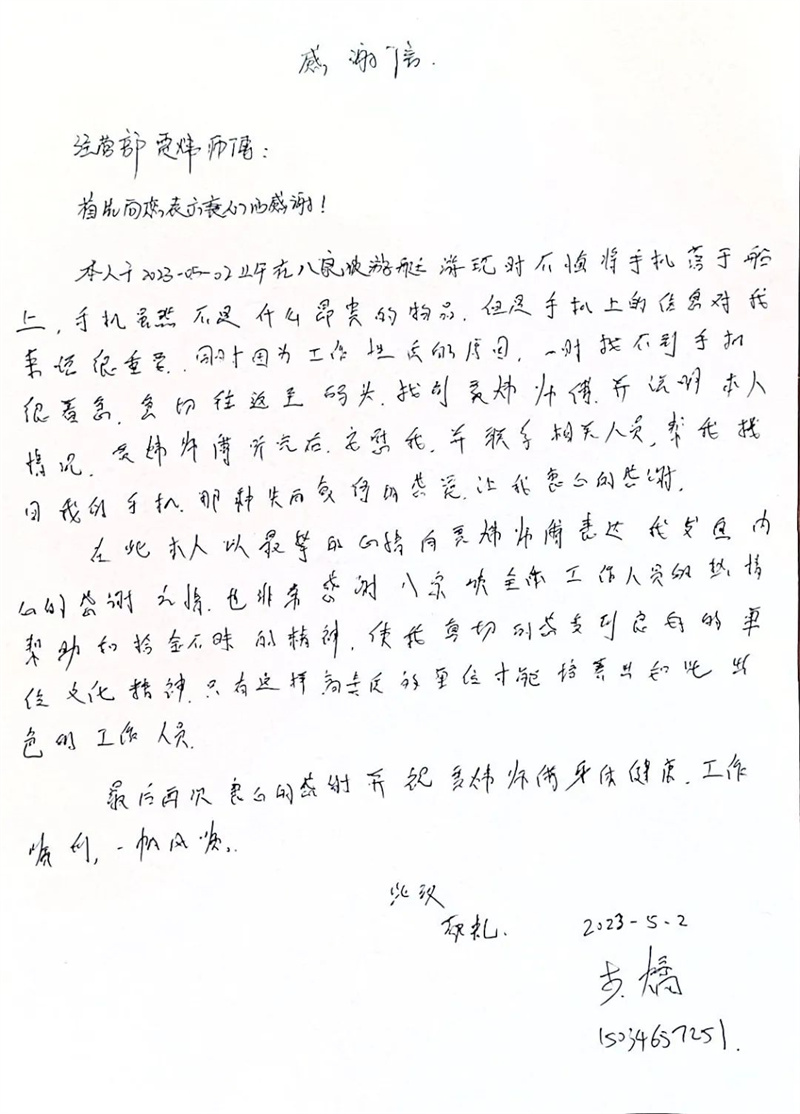 感谢信.
经营部 夏炜师傅:
首先向您表示衷心的感谢!
本人于2023-05-02上午在八泉峡游艇游玩时不慎将手机落于船
上,手机虽然不是什么昂贵的物品.但是手机上的信息对我
来说很重要.同时因为工作性质的原因,一时找不到手机
很着急.急切往返至码头.找到夏炜师傅.并说明本人
情况.夏炜师傅听完后.安慰我.并联系相关人员,帮我找
回我的手机.那种失而复得的感觉.让我衷心的感谢.
在此本人以最挚的心情向夏炜师傅表达我发自内
心的感谢之情.也非常感谢八泉峡全体工作人员的热情
帮助和拾金不昧的精神,使我真切的感受到良好的单
位文化精神.只有这样高素质的单位才能培养出如此出
色的工作人员.
最后再次衷心的感谢并祝夏炜师傅身体健康.工作
顺利,一帆风顺.
此致
敬礼.
2023-5-2
15034657251.